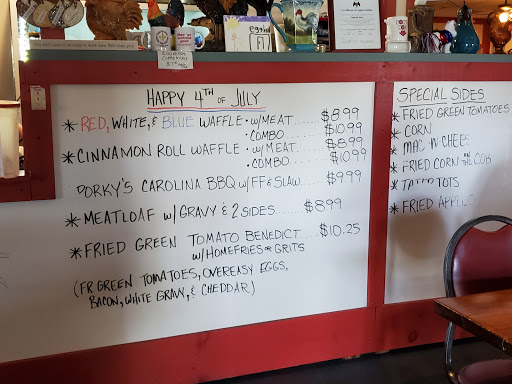 HAPPY 4TH OF JULY
* RED, WHITE, & BLUE WAFFLE · W/MEAT.... $8.99
· COMBO...... $10.99
* CINNAMON ROLL WAFFLE · W/MEAT..... $8.99
· COMBO...... $10.99
PORKY'S CAROLINA BBQ W/FF & SLAW..... $9.99
* MEATLOAF W/ GRAVY & 2 SIDES...... $8.99
* FRIED GREEN TOMATO BENEDICT.... $10.25
W/HOMEFRIES OR GRITS
(FR. GREEN TOMATOES, OVEREASY EGGS,
BACON, WHITE GRAVY, & CHEDDAR)
SPECIAL SIDES
* FRIED GREEN TOMATOES
* CORN
* MAC N CHEESE
* FRIED CORN ON THE COB
* TATER TOTS
* FRIED APPLES